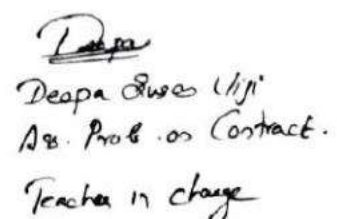 Deepa
Deepa Viji
Ass. Prof. on Contract.
Teacher in charge